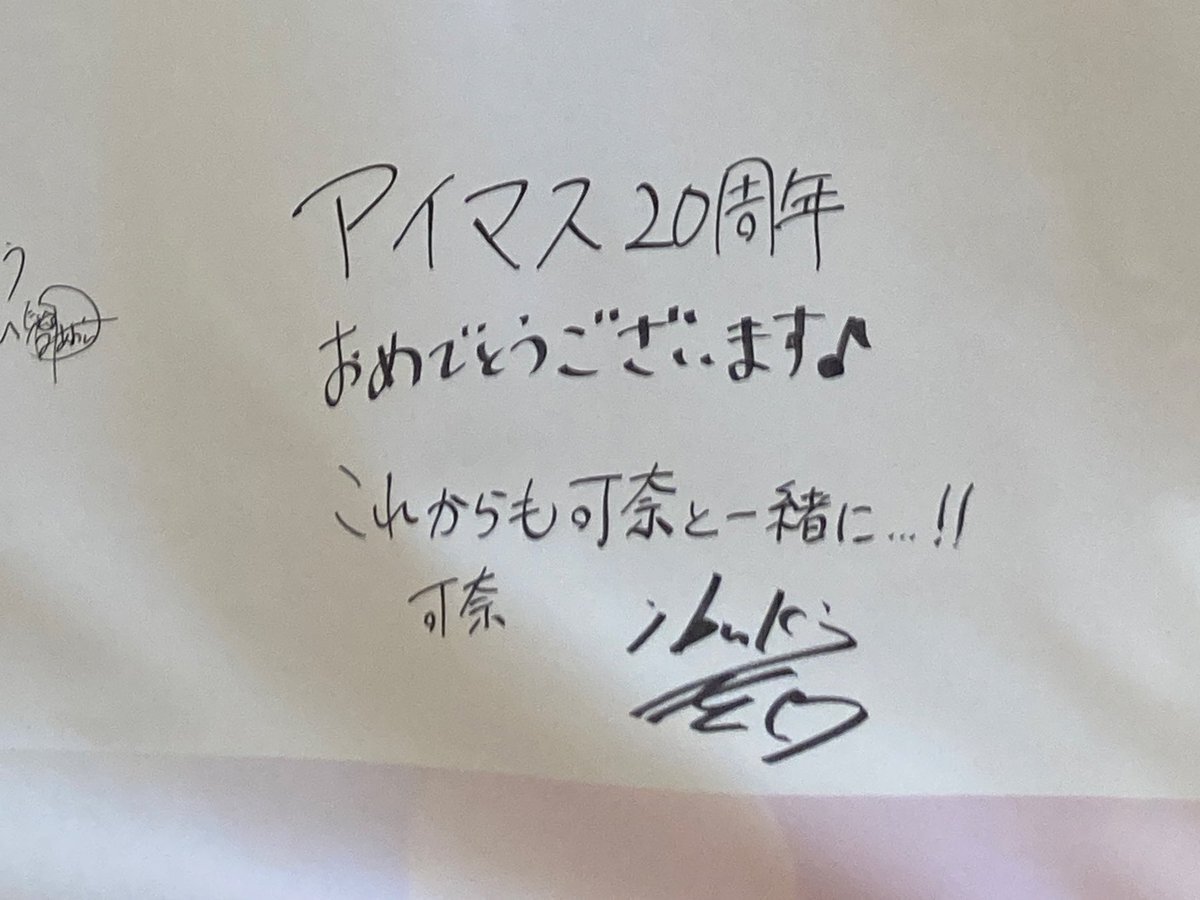 アイマス20周年
おめでとうございます♪
これからも可奈と一緒に…!!
可奈
ibuki